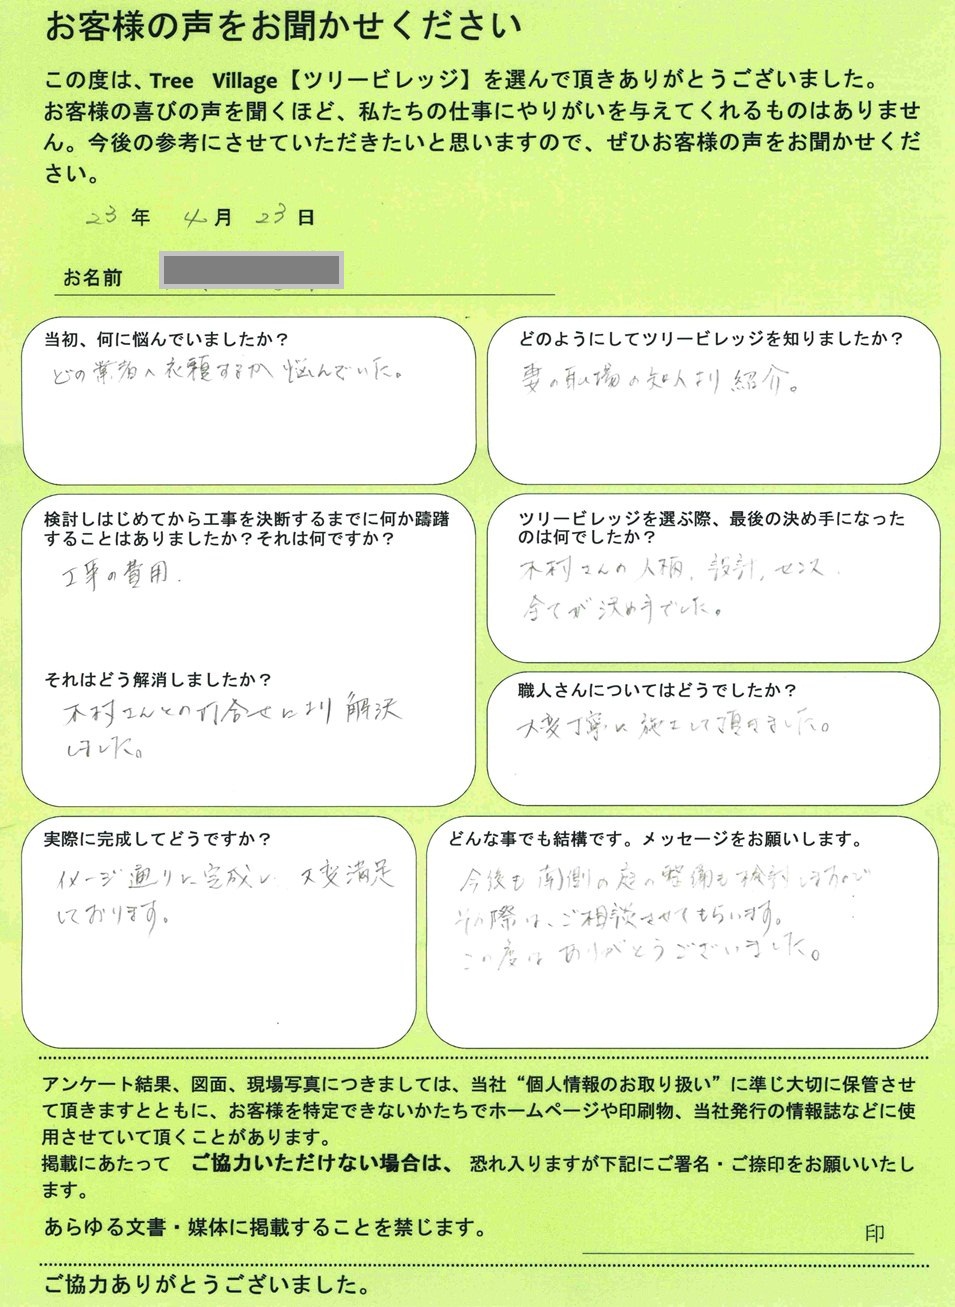 お客様の声をお聞かせください
この度は、Tree Village【ツリービレッジ】を選んで頂きありがとうございました。
お客様の喜びの声を聞くほど、私たちの仕事にやりがいを与えてくれるものはありませ
ん。今後の参考にさせていただきたいと思いますので、ぜひお客様の声をお聞かせくだ
さい。
23 年 4 月 23 日
お名前
当初、何に悩んでいましたか？
どの業者へ依頼するか 悩んでいた。
どのようにしてツリービレッジを知りましたか？
妻の職場の知人より 紹介。
検討しはじめてから工事を決断するまでに何か躊躇
することはありましたか？それは何ですか？
工事の費用.
それはどう解消しましたか？
木村さんとの打合せにより 解決
しました。
ツリービレッジを選ぶ際、最後の決め手になった
のは何でしたか？
木村さんの人柄、設計、センス
全てが決め手でした。
職人さんについてはどうでしたか？
大変丁寧に施工して頂きました。
実際に完成してどうですか？
イメージ通りに完成し 大変満足
しております。
どんな事でも結構です。メッセージをお願いします。
今後も南側の庭の整備も検討しますので
その際は、ご相談させてもらいます。
この度は ありがとうございました。
アンケート結果、図面、現場写真につきましては、当社“個人情報のお取り扱い”に準じ大切に保管させ
て頂きますとともに、お客様を特定できないかたちでホームページや印刷物、当社発行の情報誌などに使
用させていて頂くことがあります。
掲載にあたって ご協力いただけない場合は、恐れ入りますが下記にご署名・ご捺印をお願いいたし
ます。
あらゆる文書・媒体に掲載することを禁じます。
印
ご協力ありがとうございました。